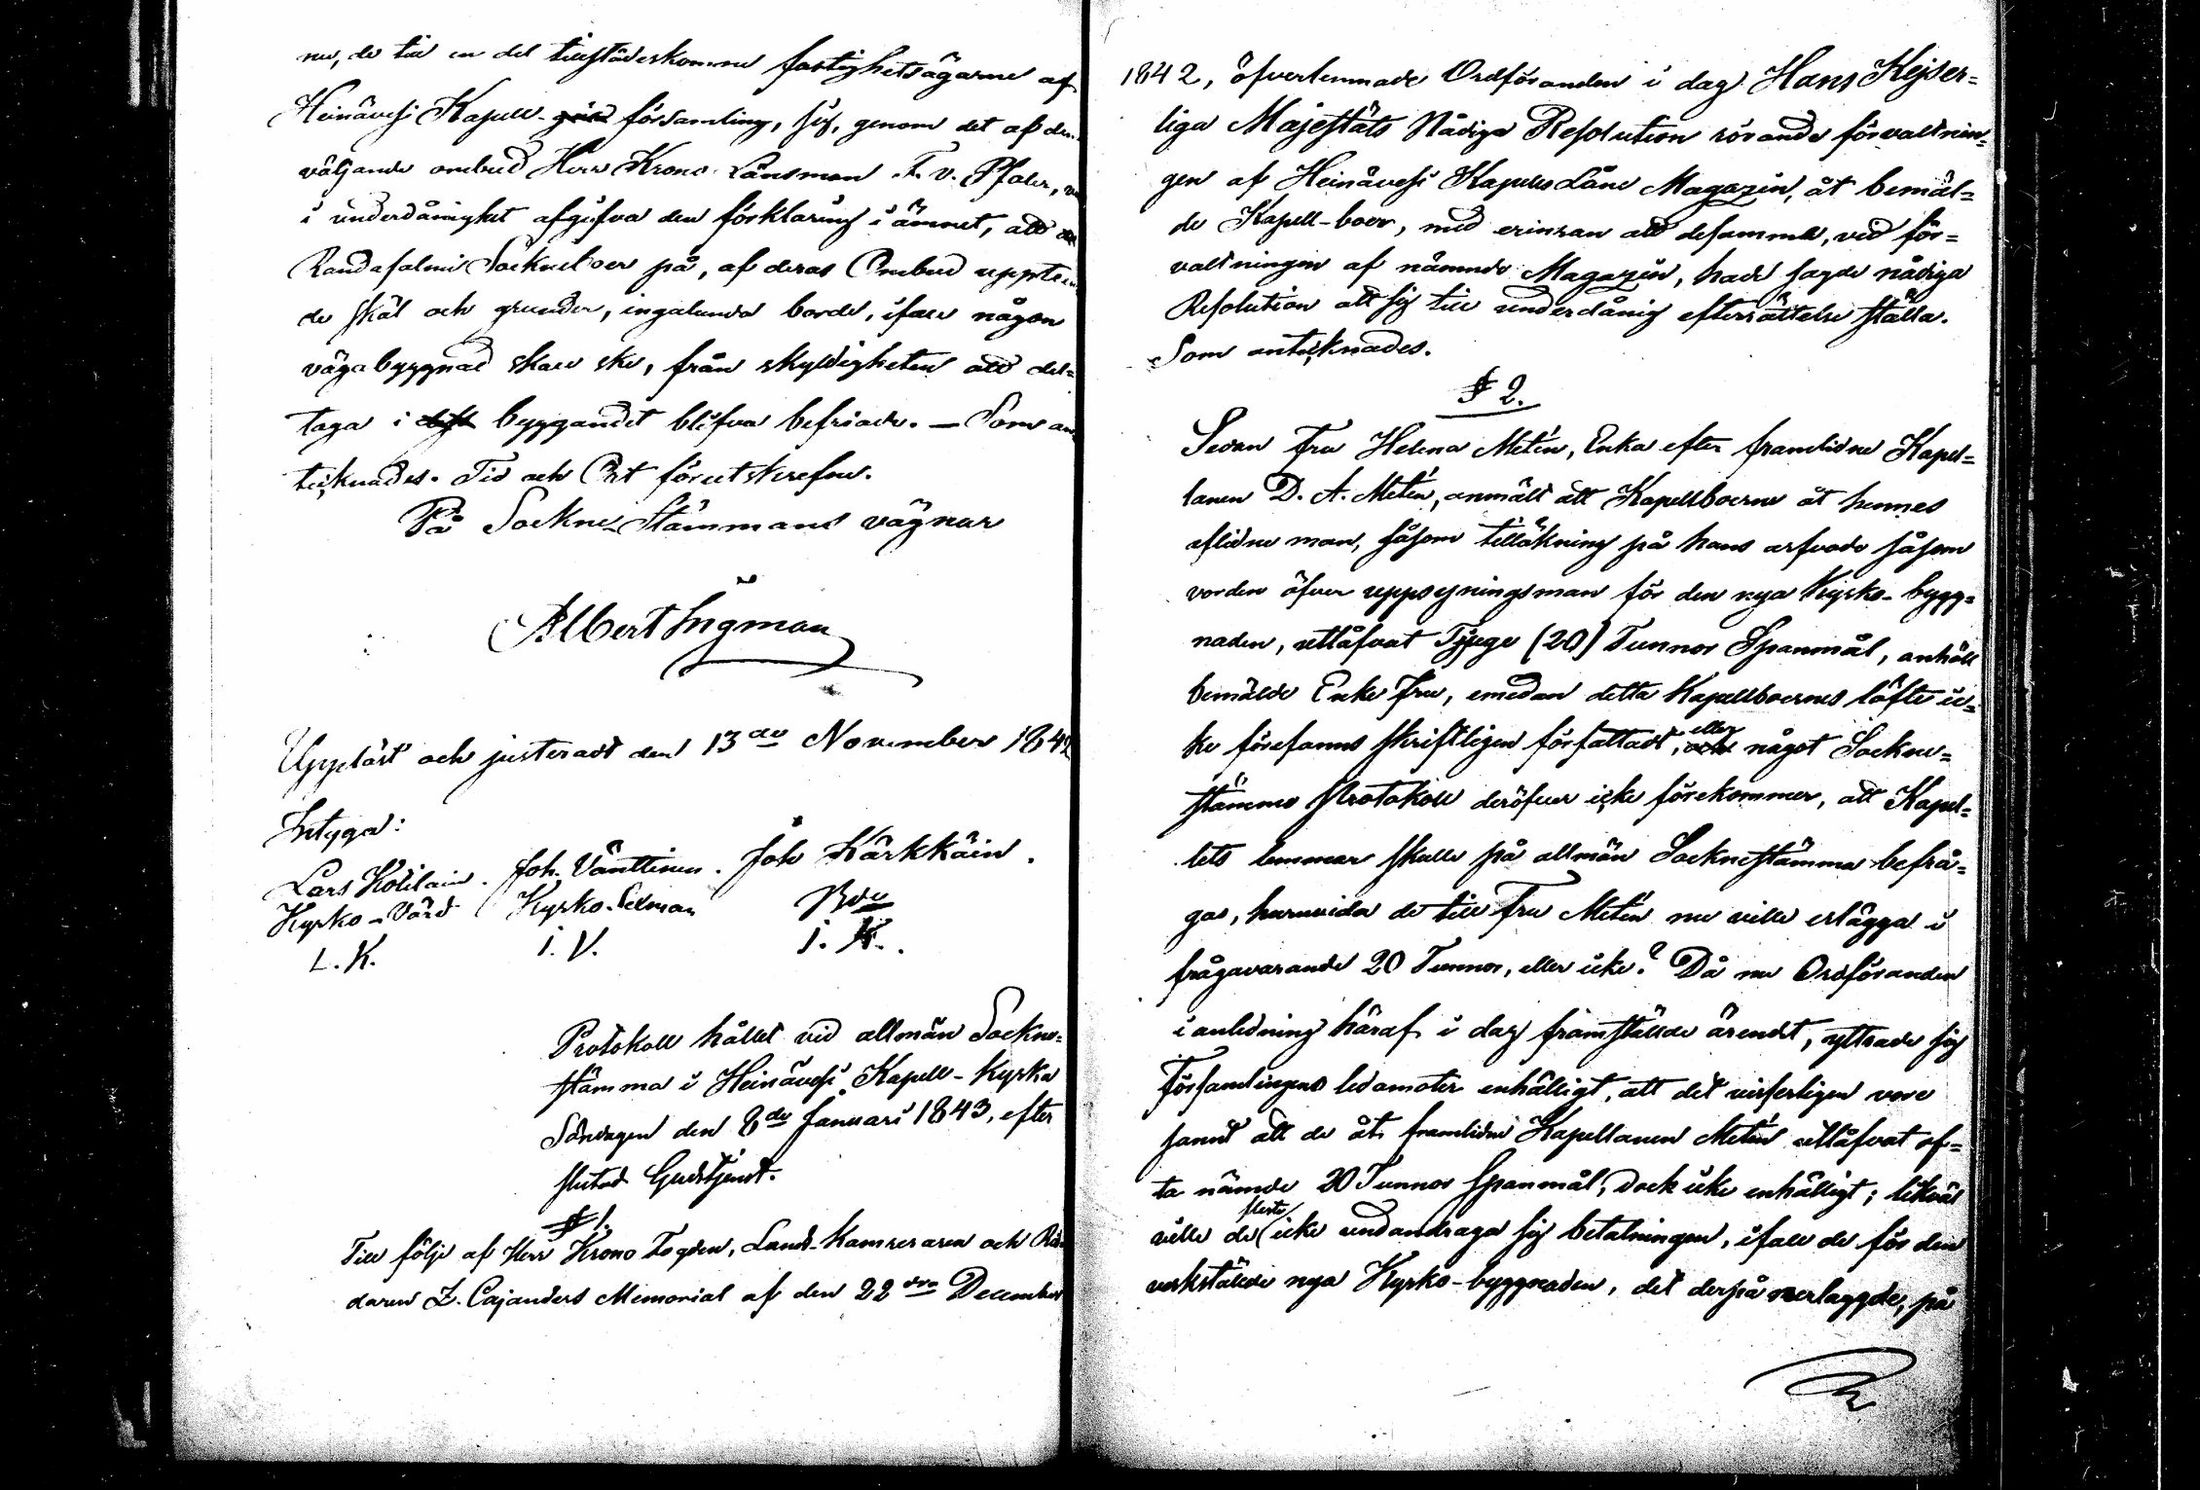 nu, de till en del tillstädeskomne fastighetsägarne af
Heinävesi Kapell- församling, sig, genom det af dem
väljande ombud Herr Krono Länsman F. v. Pfaler,
i underdånighet afgifva den förklaring i ämnet, att
Randasalmi Sockneboer på, af deras Ombud uppte
de skäl och grunder, ingalunda borde, ifall någon
vägabyggnad skall ske, från skyldigheten att del=
taga i byggandet blifva befriade. — Som an
tecknades. Tid och Ort förutskrefne.
På Sockne Stämmans vägnar
Albert Ingman
Uppläst och justeradt den 13de November 1842
Intyga:
Lars Kotilain. Joh. Vänttinen. Joh Kärkkäin.
Kyrko-Värd Kyrko-Sexman Bde
L. K. J. V. J. K.
Protokoll hållet vid allmän Sockne=
stämma i Heinävesi Kapell-Kyrka
Söndagen den 8de Januari 1843, efter
slutad Gudstjenst.
§ 1.
Till följe af Herr Krono Fogden, Lands-Kamreraren och Rid
daren Z. Cajanders Memorial af den 22dra December
1842, öfverlemnade Ordföranden i dag Hans Kejser=
liga Majestäts Nådiga Resolution rörande förvaltnin=
gen af Heinävesi Kapells Låne Magazin, åt bemäl=
de Kapell-boer, med erinran att desamma, vid för=
valtningen af nämnde Magazin, hade sagde nådiga
Resolution att sig till underdånig efterrättelse ställa.
Som antecknades.
§ 2.
Sedan Fru Helena Metén, Enka efter framlidne Kapel=
lanen D. A. Metén, anmält att Kapellboerne åt hennes
aflidne man, såsom tillökning på hans arfvode såsom
vorden öfver uppsyningsman för den nya Kyrko-bygg=
naden, utlåfvat Tjuge (20) Tunnor Spanmål, anhöll
bemälde Enke Fru, emedan detta Kapellboernes löfte ic=
ke förefanns skriftligen författadt, eller något Sockne=
stämmo Protokoll deröfver icke förekommer, att Kapel=
lets lemmar skulle på allmän Socknestämma befrå=
gas, huruvida de till Fru Metén nu ville erlägga i
frågavarande 20 Tunnor, eller icke? Då nu Ordföranden
i anledning häraf i dag framställde ärendet, yttrade sig
Församlingens ledamoter enhälligt, att det visserligen vore
sannt att de åt framlidne Kapellanen Metén utlåfvat of=
ta nämde 20 Tunnor Spanmål, dock icke enhälligt; likväl
ville de flesta icke undandraga sig betalningen, ifall de för den
verkstälde nya Kyrko-byggnaden, det derpå nerlaggde, på